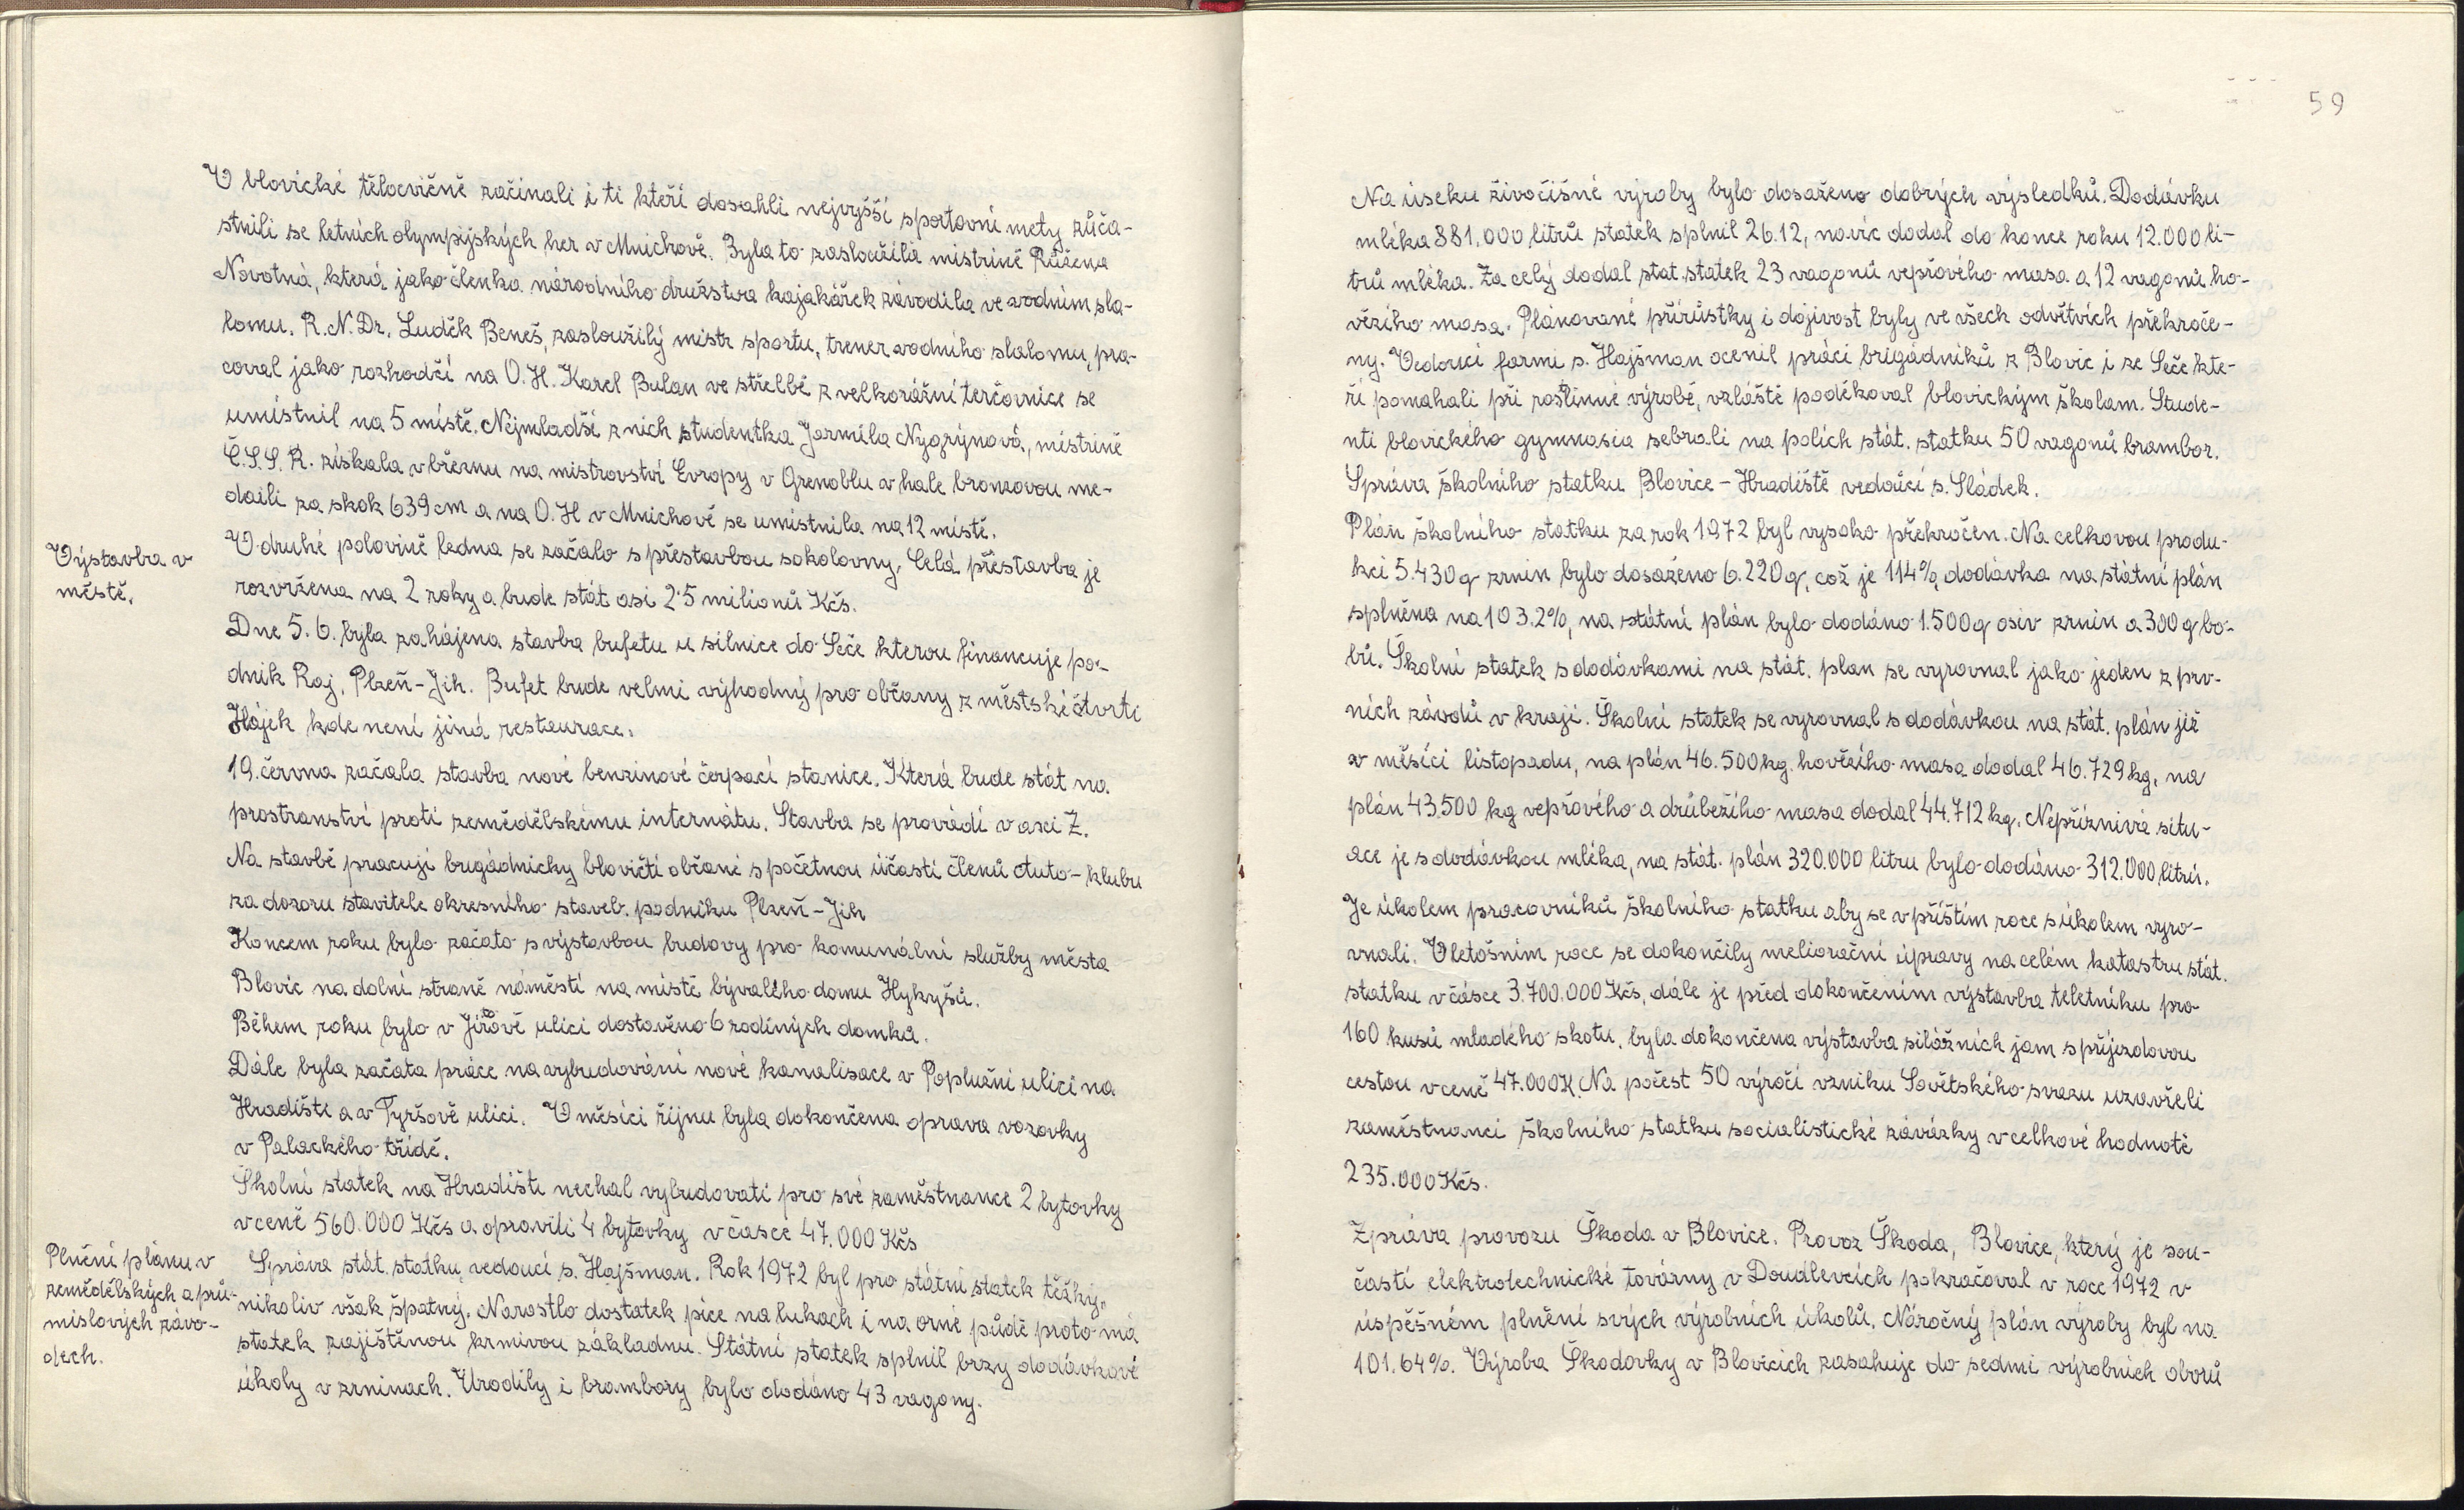 V blovické tělocvičně začínali i ti kteří dosáhli nejvyšší sportovní mety zúča-
stnili se letních olympijských her v Mnichově. Byla to zasloužilá mistrině Růžena
Novotná, která jako členka národního družstva kajakářek závodila ve vodním sla-
lomu. R.N.Dr. Luděk Beneš, zasloužilý mistr sportu, trener vodního slalomu, pra-
coval jako rozhodčí na O.H. Karel Bulan ve střelbě z velkorážní terčovnice se
umístnil na 5 místě. Nejmladší z nich studentka Jarmila Nygrýnová, mistrině
Č.S.S.R. získala v březnu na mistrovství Evropy v Grenoblu v hale bronzovou me-
daili za skok 639 cm a na O.H v Mnichově se umístnila na 12 místě.
Výstavba v
městě.
V druhé polovině ledna se začalo s přestavbou sokolovny. Celá přestavba je
rozvržena na 2 roky a bude stát asi 2·5 milionů Kčs.
Dne 5.6. byla zahájena stavba bufetu u silnice do Seče kterou financuje po-
dnik Raj, Plzeň-Jih. Bufet bude velmi výhodný pro občany z městské čtvrti
Hájek kde není jiná restaurace.
19. června začala stavba nové benzinové čerpací stanice. Která bude stát na
prostranství proti zemědělskému internátu. Stavba se provádí v asci Z.
Na stavbě pracují brigádnicky blovičtí občané s početnou účastí členů Auto-klubu
za dozoru stavitele okresního staveb. podniku Plzeň-Jih
Koncem roku bylo začato s výstavbou budovy pro komunální služby města
Blovic na dolní straně náměstí na místě bývalého domu Hykyšů.
Během roku bylo v Jiráově ulici dostavěno 6 rodiných domků.
Dále byla začata práce na vybudování nové kanalisace v Poplužní ulici na
Hradišti a v Tyršově ulici. V měsíci říjnu byla dokončena oprava vozovky
v Palackého třídě.
Školní statek na Hradišti nechal vybudovati pro své zaměstnance 2 bytovky
v ceně 560.000 Kčs a opravili 4 bytovky v časce 47.000 Kčs
Plnění plánu v
zemědělských a prů-
mislových závo-
dech.
Správa stát. statku, vedoucí s. Hajšman. Rok 1972 byl pro státní statek těžký,
nikoliv však špatný. Narostlo dostatek píce na lukach i na orné půdě proto má
statek zajištěnou krmivou základnu. Státní statek splnil brzy dodávkové
úkoly v zrninach. Urodily i brambory bylo dodáno 43 vagony.
59
Na úseku živočišné výroby bylo dosaženo dobrých výsledků. Dodávku
mléka 881.000 litrů statek splnil 26.12, navíc dodal do konce roku 12.000 li-
trů mléka. Za celý dodal stat. statek 23 vagonů vepřového masa a 12 vagonů ho-
vězího masa. Plánované přírůstky i dojivost byly ve všech odvětvích překroče-
ny. Vedoucí farmi s. Hajšman ocenil práci brigádníků z Blovic i ze Seče kte-
ří pomahali při rostlinné výrobě, vzláště poděkoval blovickým školam. Stude-
nti blovického gymnasia sebrali na polích stát. statku 50 vagonů brambor.
Správa školního statku Blovice-Hradiště vedoucí s. Sládek.
Plán školního statku za rok 1972 byl vysoko překročen. Na celkovou produ-
kci 5.430 q zrnin bylo dosaženo 6.220 q, což je 114%, dodávka na státní plán
splněna na 103.2%, na státní plán bylo dodáno 1.500 q osiv zrnin a 300 q bo-
bů. Školní statek s dodávkami na stát. plan se vyrovnal jako jeden z prv-
ních závodů v kraji. Školní statek se vyrovnal s dodávkou na stát. plán již
v měsíci listopadu, na plán 46.500 kg. hovězího masa dodal 46.729 kg, na
plán 43.500 kg vepřového a drůbežího masa dodal 44.712 kg. Nepříznivá situ-
ace je s dodávkou mléka, na stát. plán 320.000 litru bylo dodáno 312.000 litrů.
Je úkolem pracovníků školního statku aby se v příštím roce s úkolem vyro-
vnali. V letošním roce se dokončily meliorační úpravy na celém katastru stát.
statku v čásce 3.700.000 Kčs, dále je před dokončením výstavba teletníku pro
160 kusů mladého skotu, byla dokončena výstavba silážních jam s příjezdovou
cestou v ceně 47.000 K. Na počest 50 výročí vzniku Sovětského svazu uzavřeli
zaměstnanci školního statku socialistické závazky v celkové hodnotě
235.000 Kčs.
Zpráva provozu Škoda v Blovice. Provoz Škoda, Blovice, který je sou-
částí elektrotechnické továrny v Doudlevcích pokračoval v roce 1972 v
úspěšném plnění svých výrobních úkolů. Náročný plán výroby byl na
101.64%. Výroba Škodovky v Blovicích zasahuje do sedmi výrobních oborů